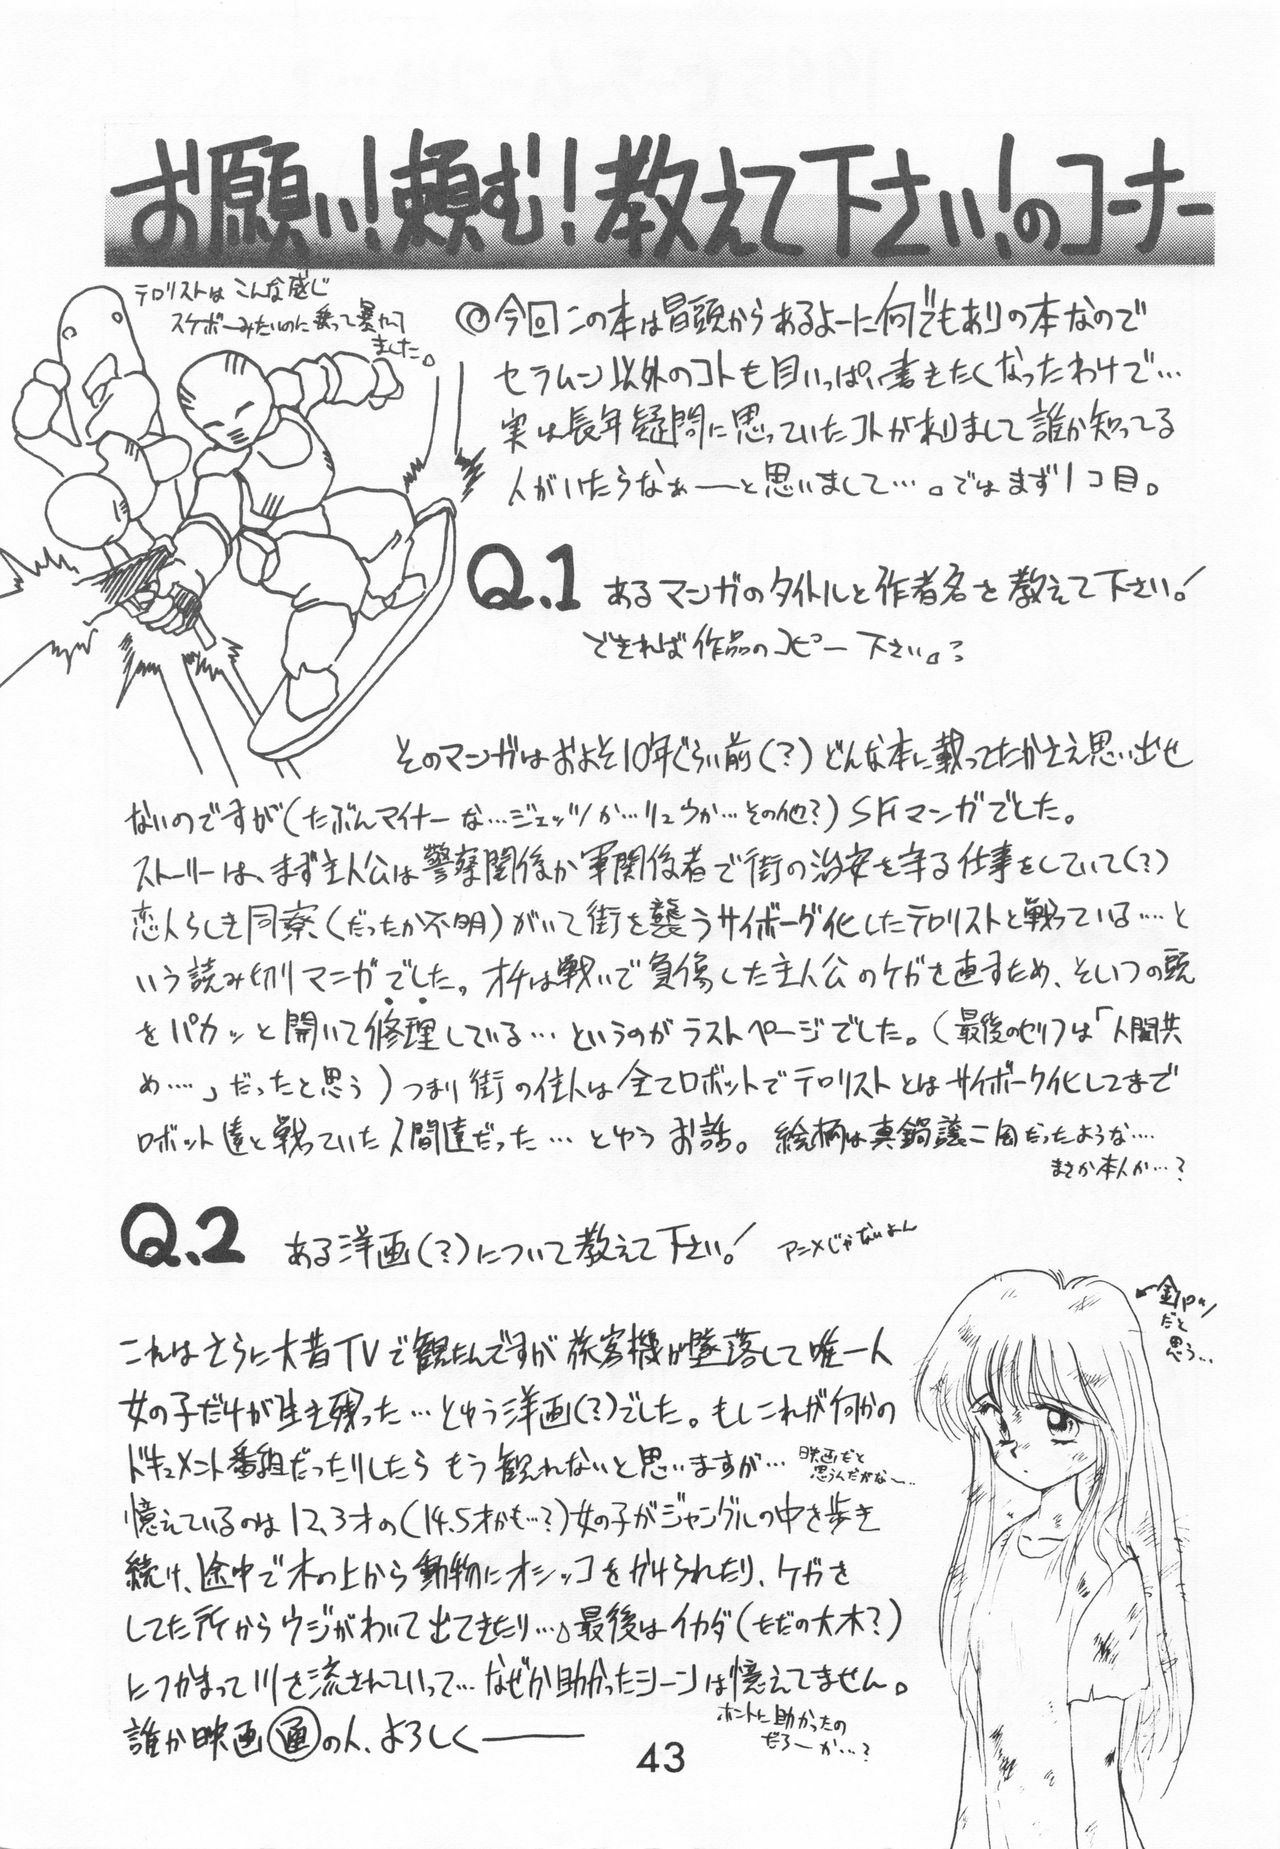 お願い!頼む!教えて下さい!のコーナー
テロリストは こんな感じ
スケボーみたいのに乗って暴れて
ました。
◎今回この本は冒頭からあるよーに何でもありの本なので
セラムン以外のコトも目いっぱい書きたくなったわけで…
実は長年疑問に思っていたコトがありまして誰か知ってる
人がいたらなぁーと思いまして…。ではまず1コ目。
Q.1 あるマンガのタイトルと作者名を教えて下さい!
できれば作品のコピー下さい。
そのマンガはおよそ10年ぐらい前(?)どんな本に載ってたかさえ思い出せ
ないのですが(たぶんマイナーな…ジェッツか…リュウか…その他?)SFマンガでした。
ストーリーは、まず主人公は警察関係か軍関係者で街の治安を守る仕事をしていて(?)
恋人らしき同寮(だったか不明)がいて街を襲うサイボーグ化したテロリストと戦っている…と
いう読み切りマンガでした。オチは戦いで負傷した主人公のケガを直すため、そいつの頭
をパカッと開いて修理している…というのがラストページでした。(最後のセリフは「人間共
め…。」だったと思う)つまり街の住人は全てロボットでテロリストとはサイボーグ化してまで
ロボット達と戦っていた人間達だった…とゆうお話。絵柄は真鍋譲二風だったような…
まさか本人か…?
Q.2 ある洋画(?)について教えて下さい! アニメじゃないよん
これはさらに大昔TVで観たんですが旅客機が墜落して唯一人
女の子だけが生き残った…とゆう洋画(?)でした。もしこれが何かの
ドキュメント番組だったりしたらもう観れないと思いますが…
映画だと
思うんだがなー…
憶えているのは12,3才の(14.5才かも…?)女の子がジャングルの中を歩き
続け、途中で木の上から動物にオシッコをかけられたり、ケガを
してた所からウジがわいて出てきたり…。最後はイカダ(ただの大木?)
につかまって川を流されていって…なぜか助かったシーンは憶えてません。
ホントに助かったの
だろーか…?
誰か映画通の人、よろしくー
←金パツ
だと
思う…
43